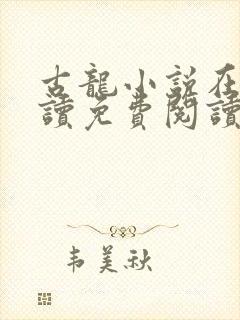 古龍小說在
讀免費閱讀
韦美秋